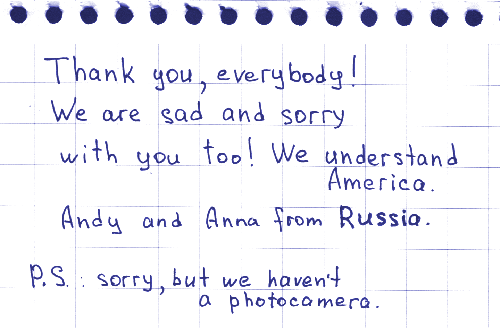 Thank you, everybody!
We are sad and sorry
with you too! We understand
America.
Andy and Anna from Russia.
P.S.: sorry, but we haven't
a photocamera.